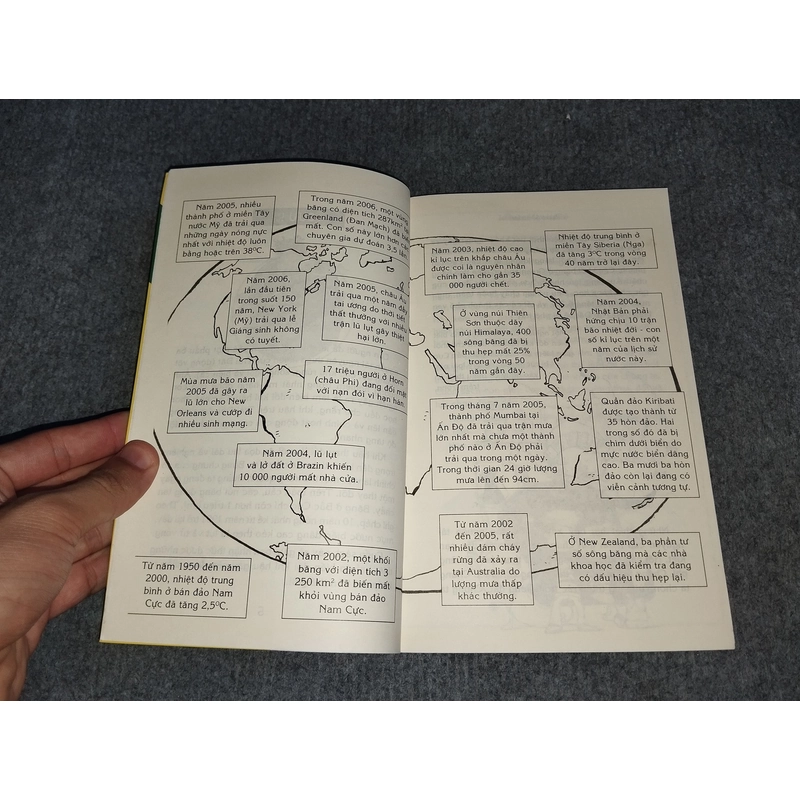 Năm 2005, nhiều
thành phố ở miền Tây
nước Mỹ đã trải qua
những ngày nóng nực
nhất với nhiệt độ luôn
bằng hoặc trên 38ºC.
Trong năm 2006, một vùng
băng có diện tích 287km²
Greenland (Đan Mạch) đã
mất. Con số này lớn hơn các
chuyên gia dự đoán 3,5 lần
Năm 2006,
lần đầu tiên
trong suốt 150
năm, New York
(Mỹ) trải qua lễ
Giáng sinh không
có tuyết.
Năm 2005, châu Âu
trải qua một năm đầy
tai ương do thời tiết
thất thường với nhiều
trận lũ lụt gây thiệt
hại lớn.
17 triệu người ở Horn
(châu Phi) đang đối mặt
với nạn đói vì hạn hán.
Mùa mưa bão năm
2005 đã gây ra
lũ lớn cho New
Orleans và cướp đi
nhiều sinh mạng.
Năm 2004, lũ lụt
và lở đất ở Brazin khiến
10 000 người mất nhà cửa.
Từ năm 1950 đến năm
2000, nhiệt độ trung
bình ở bán đảo Nam
Cực đã tăng 2,5ºC.
Năm 2002, một khối
băng với diện tích 3
250 km² đã biến mất
khỏi vùng bán đảo
Nam Cực.
Năm 2003, nhiệt độ cao
kỉ lục trên khắp châu Âu
được coi là nguyên nhân
chính làm cho gần 35
000 người chết.
Nhiệt độ trung bình ở
miền Tây Siberia (Nga)
đã tăng 3ºC trong vòng
40 năm trở lại đây.
Ở vùng núi Thiên
Sơn thuộc dãy
núi Himalaya, 400
sông băng đã bị
thu hẹp mất 25%
trong vòng 50
năm gần đây.
Năm 2004,
Nhật Bản phải
hứng chịu 10 trận
bão nhiệt đới - con
số kỉ lục trên một
năm của lịch sử
nước này.
Trong tháng 7 năm 2005,
thành phố Mumbai tại
Ấn Độ đã trải qua trận mưa
lớn nhất mà chưa một thành
phố nào ở Ấn Độ phải
trải qua trong một ngày.
Trong thời gian 24 giờ lượng
mưa lên đến 94cm.
Quần đảo Kiribati
được tạo thành từ
35 hòn đảo. Hai
trong số đó đã bị
chìm dưới biển do
mực nước biển dâng
cao. Ba mươi ba hòn
đảo còn lại đang có
viễn cảnh tương tự.
Từ năm 2002
đến 2005, rất
nhiều đám cháy
rừng đã xảy ra
tại Australia do
lượng mưa thấp
khác thường.
Ở New Zealand, ba phần tư
số sông băng mà các nhà
khoa học đã kiểm tra đang
có dấu hiệu thu hẹp lại.